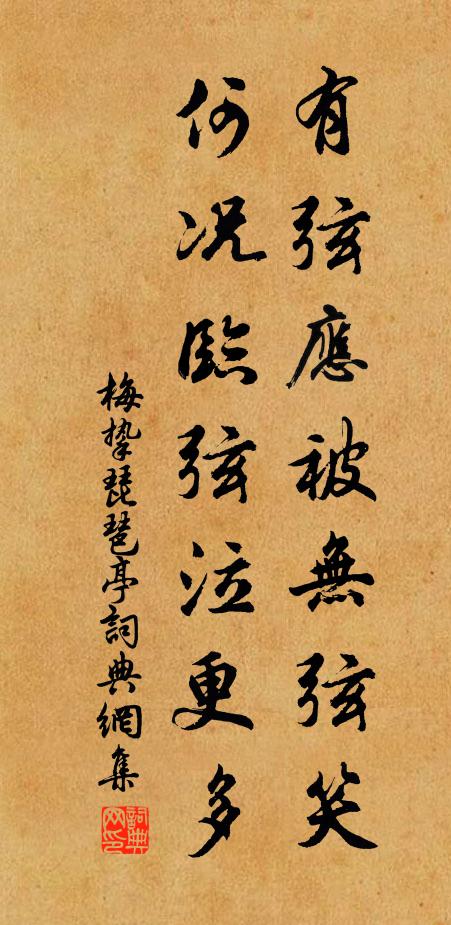 有弦應被無弦笑
何况臨弦泣更多
梅挚琵琶亭詞典網集
詞典网印